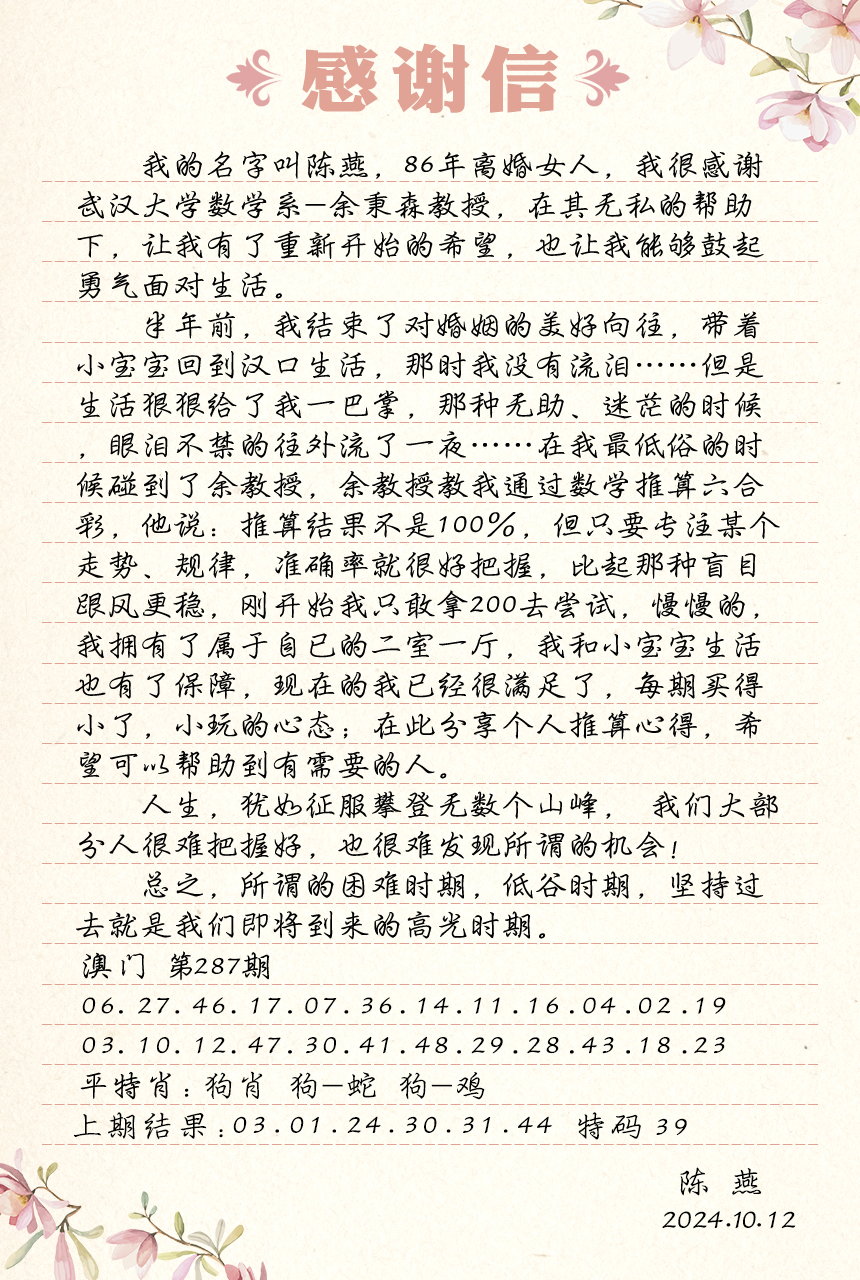 感谢信
我的名字叫陈燕，86年离婚女人，我很感谢
武汉大学数学系—余秉森教授，在其无私的帮助
下，让我有了重新开始的希望，也让我能够鼓起
勇气面对生活。
半年前，我结束了对婚姻的美好向往，带着
小宝宝回到汉口生活，那时我没有流泪……但是
生活狠狠给了我一巴掌，那种无助、迷茫的时候
，眼泪不禁的往外流了一夜……在我最低俗的时
候碰到了余教授，余教授教我通过数学推算六合
彩，他说：推算结果不是100%，但只要专注某个
走势、规律，准确率就很好把握，比起那种盲目
跟风更稳，刚开始我只敢拿200去尝试，慢慢的，
我拥有了属于自已的二室一厅，我和小宝宝生活
也有了保障，现在的我已经很满足了，每期买得
小了，小玩的心态；在此分享个人推算心得，希
望可以帮助到有需要的人。
人生，犹如征服攀登无数个山峰， 我们大部
分人很难把握好，也很难发现所谓的机会！
总之，所谓的困难时期，低谷时期，坚持过
去就是我们即将到来的高光时期。
澳门 第287期
06.27.46.17.07.36.14.11.16.04.02.19
03.10.12.47.30.41.48.29.28.43.18.23
平特肖：狗肖 狗—蛇 狗—鸡
上期结果：03.01.24.30.31.44 特码 39
陈 燕
2024.10.12